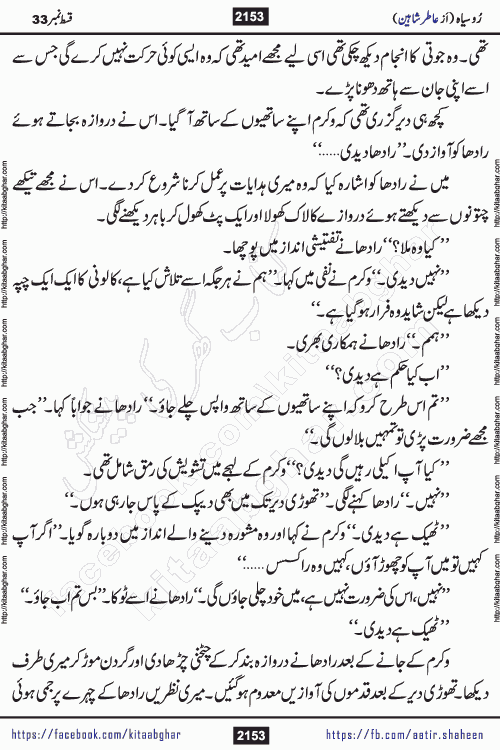 رُوسیاہ (از عاطر شاہین)
2153
قسط نمبر 33
تھی۔ وہ جوتی کا انجام دیکھ چکی تھی اسی لیے مجھے امید تھی کہ وہ ایسی کوئی حرکت نہیں کرے گی جس سے
اسے اپنی جان سے ہاتھ دھونا پڑے۔
کچھ ہی دیر گزری تھی کہ وکرم اپنے ساتھیوں کے ساتھ آ گیا۔ اس نے دروازہ بجاتے ہوئے
رادھا کو آواز دی۔ ’’رادھا دیدی......‘‘
میں نے رادھا کو اشارہ کیا کہ وہ میری ہدایات پر عمل کرنا شروع کر دے۔ اس نے مجھے تیکھے
چتونوں سے دیکھتے ہوئے دروازے کا لاک کھولا اور ایک پٹ کھول کر باہر دیکھنے لگی۔
’’کیا وہ ملا؟‘‘ رادھا نے تفتیشی انداز میں پوچھا۔
’’نہیں دیدی۔‘‘ وکرم نے نفی میں کہا۔ ’’ہم نے ہر جگہ اسے تلاش کیا ہے، کالونی کا ایک ایک چپہ
دیکھا ہے لیکن شاید وہ فرار ہو گیا ہے۔‘‘
’’ہمم۔‘‘ رادھا نے ہمکاری بھری۔
’’اب کیا حکم ہے دیدی؟‘‘
’’تم اس طرح کرو کہ اپنے ساتھیوں کے ساتھ واپس چلے جاؤ۔‘‘ رادھا نے جواباً کہا۔ ’’جب
مجھے ضرورت پڑی تو تمہیں بلا لوں گی۔‘‘
’’کیا آپ اکیلی رہیں گی دیدی؟‘‘ وکرم کے لہجے میں تشویش کی رمق شامل تھی۔
’’نہیں۔‘‘ رادھا کہنے لگی۔ ’’تھوڑی دیر تک میں بھی دیپک کے پاس جا رہی ہوں۔‘‘
’’ٹھیک ہے دیدی۔‘‘ وکرم نے کہا اور وہ مشورہ دینے والے انداز میں دوبارہ گویا۔ ’’اگر آپ
کہیں تو میں آپ کو چھوڑ آؤں، کہیں وہ راکسس......‘‘
’’نہیں، اس کی ضرورت نہیں ہے، میں خود چلی جاؤں گی۔‘‘ رادھا نے اسے ٹوکا۔ ’’بس تم اب جاؤ۔‘‘
’’ٹھیک ہے دیدی۔‘‘
وکرم کے جانے کے بعد رادھا نے دروازہ بند کر کے چٹخنی چڑھا دی اور گردن موڑ کر میری طرف
دیکھا۔ تھوڑی دیر کے بعد قدموں کی آوازیں معدوم ہو گئیں۔ میری نظریں رادھا کے چہرے پر جمی ہوئی
https://facebook.com/kitaabghar
2153
https://fb.com/aatir.shaheen
http://kitaabghar.com
http://kitaabghar.com
http://kitaabghar.com
http://kitaabghar.com
http://kitaabghar.com
http://kitaabghar.com
http://kitaabghar.com
http://kitaabghar.com
http://kitaabghar.com
http://kitaabghar.com
http://kitaabghar.com
http://kitaabghar.com
کتاب گھر کی پیشکش
facebook.com/kitaabghar
kitaabghar.com